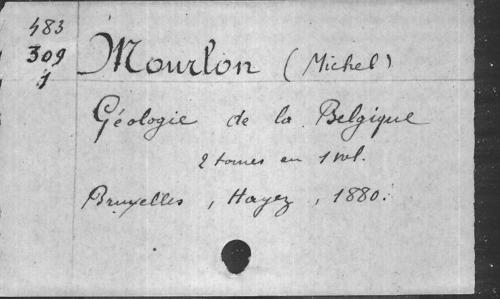 483
309
1
Mourlon (Michel)
Géologie de la Belgique
2 tomes en 1 vol.
Bruxelles, Hayez, 1880.